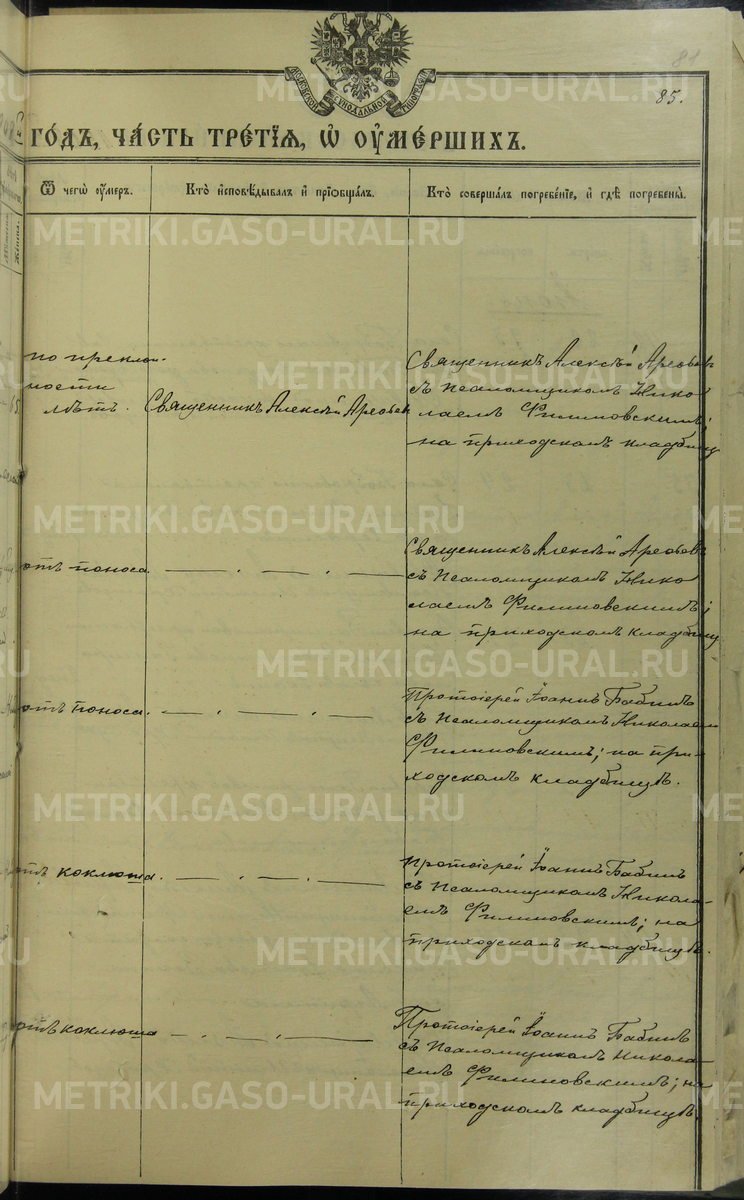 81
85.
МОСКОВСКОЙ СѴНОДАЛЬНОЙ ТИПОГРАФІИ
ГОДЪ, ЧАСТЬ ТРЕТІЯ, Ѡ ОУМЕРШИХЪ.
Ѿ чегѡ оумеръ.
Кто исповѣдывалъ и пріобщалъ.
Кто совершалъ погребеніе, и гдѣ погребены.
по преклон-
ности
лѣтъ.
Священникъ Алексѣй
Священникъ Алексѣй
съ Псаломщикомъ Нико
лаемъ Филиповскимъ;
на приходскомъ кладбищѣ
отъ поноса.
Священникъ Алексѣй
съ Псаломщикомъ Нико
лаемъ Филиповскимъ;
на приходскомъ кладбищѣ
отъ поноса.
Протоіерей Іоаннъ Бабинъ
съ Псаломщикомъ Николаемъ
Филиповскимъ; на при-
ходскомъ кладбищѣ.
отъ коклюша.
Протоіерей Іоаннъ Бабинъ
съ Псаломщикомъ Никола-
емъ Филиповскимъ; на
приходскомъ кладбищѣ.
отъ коклюша
Протоіерей Іоаннъ Бабинъ
съ Псаломщикомъ Никола-
емъ Филиповскимъ; на
приходскомъ кладбищѣ.
METRIKI.GASO-URAL.RU